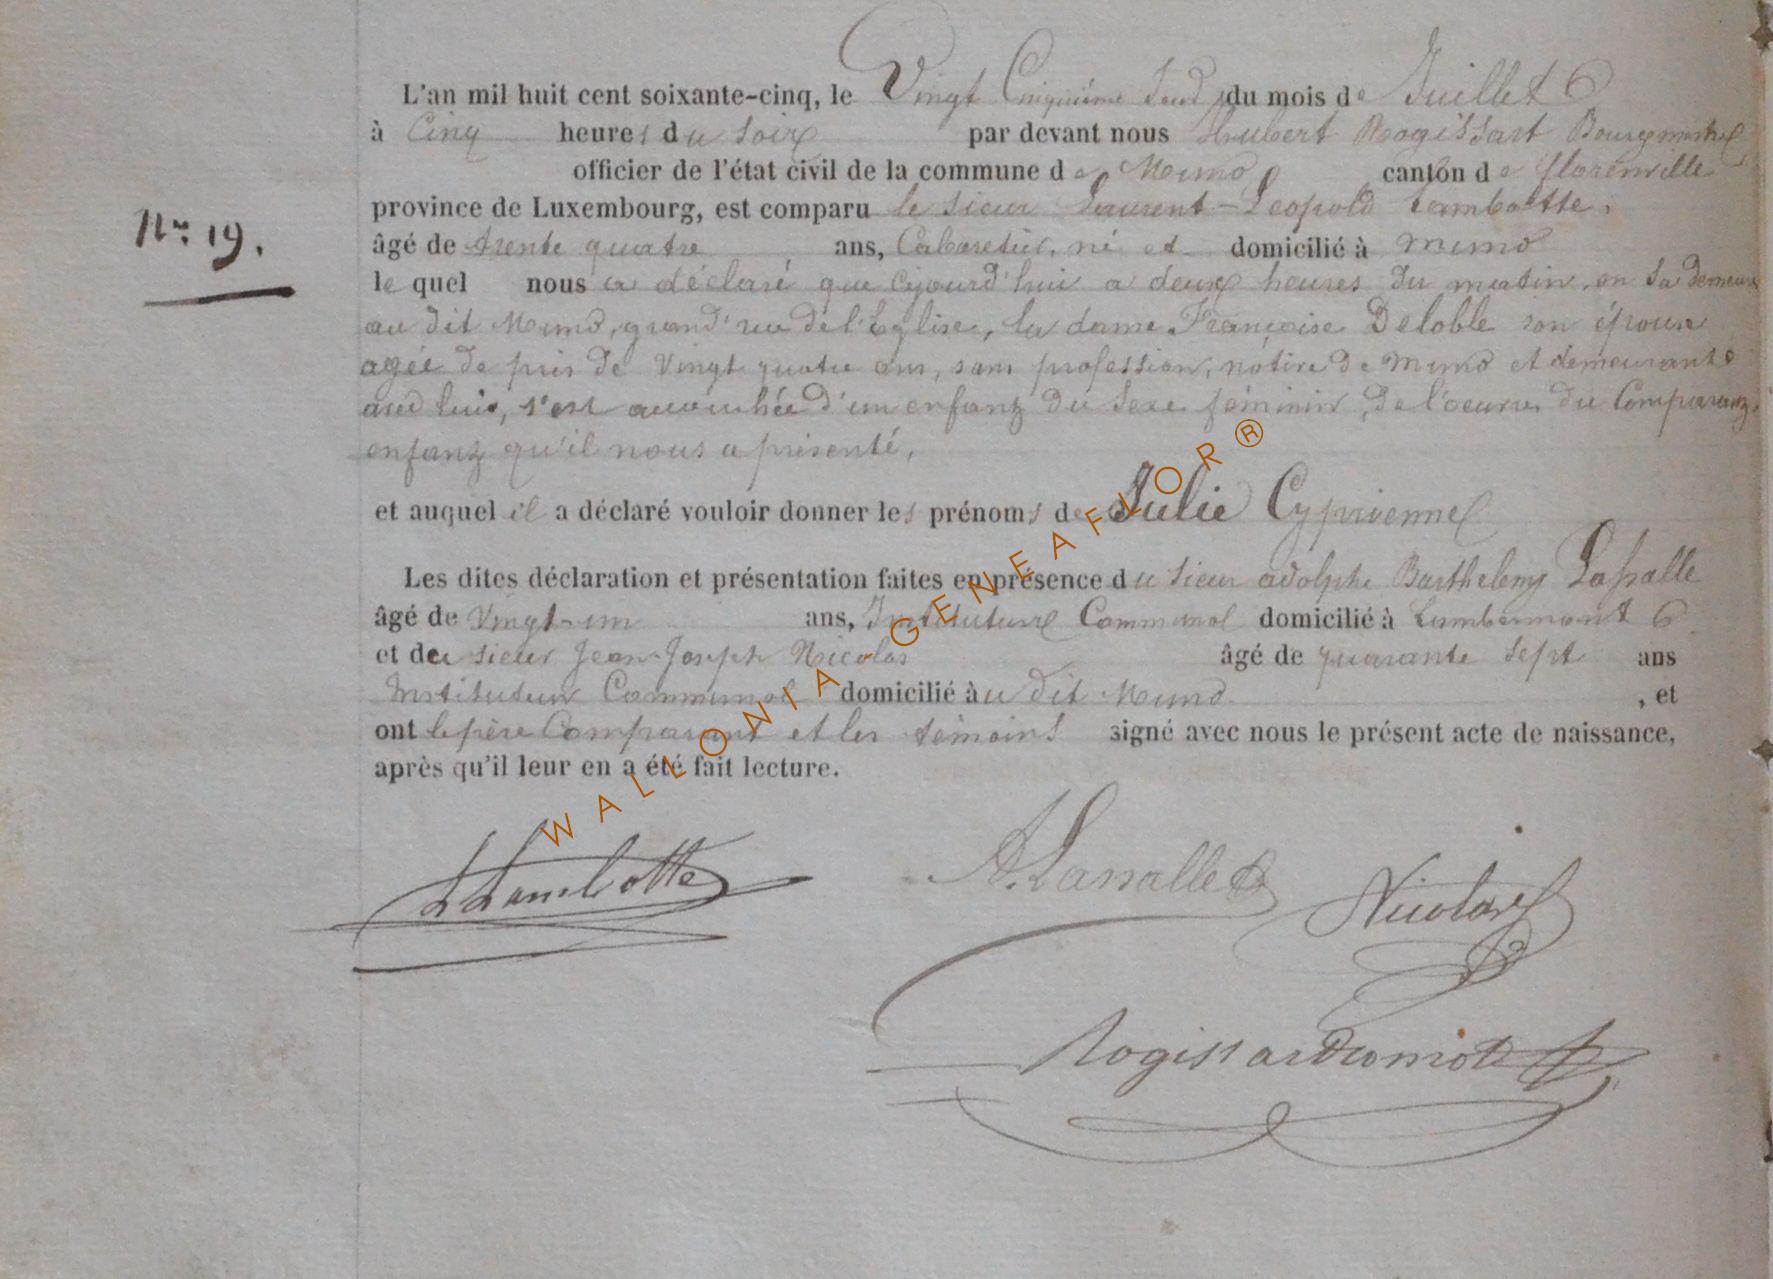 L'an mil huit cent soixante-cinq, le Vingt Cinquième Jour du mois de Juillet
à Cinq heures du soir par devant nous Hubert Rogissart Bourgmestre
officier de l'état civil de la commune de Muno canton de florenville
province de Luxembourg, est comparu le sieur Laurent-Leopold Lambotte,
Nro 19.
âgé de trente quatre ans, Cabaretier, né et domicilié à Muno
le quel nous a déclaré que cejourd'hui a deux heures du matin, en sa demeure
au dit Muno, grand'rue de l'Eglise, la dame Françoise Deloble son épouse
agée de près de Vingt quatre ans, sans profession, native de Muno et demeurante
avec lui, s'est accouchée d'un enfant du sexe féminin, de l'oeuvre du Comparant,
enfant qu'il nous a présenté,
et auquel il a déclaré vouloir donner les prénoms de Julie Cyprienne
Les dites déclaration et présentation faites en présence du sieur adolphe Barthelemy Lassalle
âgé de Vingt-un ans, Instituteur Communal domicilié à Lambermont
et du sieur Jean-Joseph Nicolas âgé de quarante sept ans
Instituteur Communal domicilié au dit Muno , et
ont le père Comparant et les témoins signé avec nous le présent acte de naissance,
après qu'il leur en a été fait lecture.
L Lambotte
A. Lassalle
Nicolas
WALLONIA GENEAFLOR®